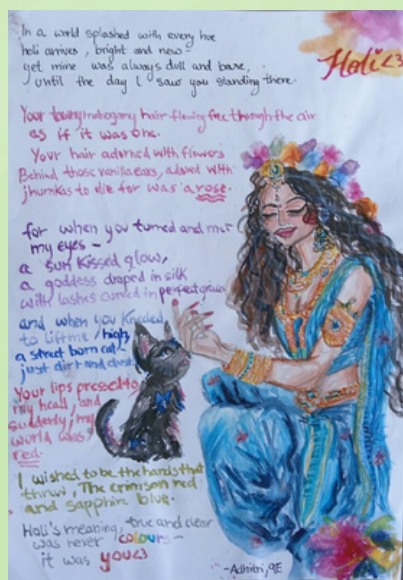 In a world splashed with every hue
holi arrives, bright and new-
yet mine was always dull and bare,
until the day I saw you standing there.
Holi<3
Your mahogany hair flowing free through the air
as if it was one.
Your hair adorned with flowers
Behind those vanilla ears, adored with
jhumkas to die for was a rose.
for when you turned and met
my eyes -
a sun kissed glow,
a goddess draped in silk
with lashes curved in perfect grace
and when you kneeled
to lift me high,
a street born cat -
just dirt and dust,
Your lips pressed to
my head, and
suddenly, my
world was
red.
I wished to be the hands that
threw, The crimson red
and sapphire blue.
Holi's meaning, true and clear
was never colours -
it was you<3
-Adhitri, 9E